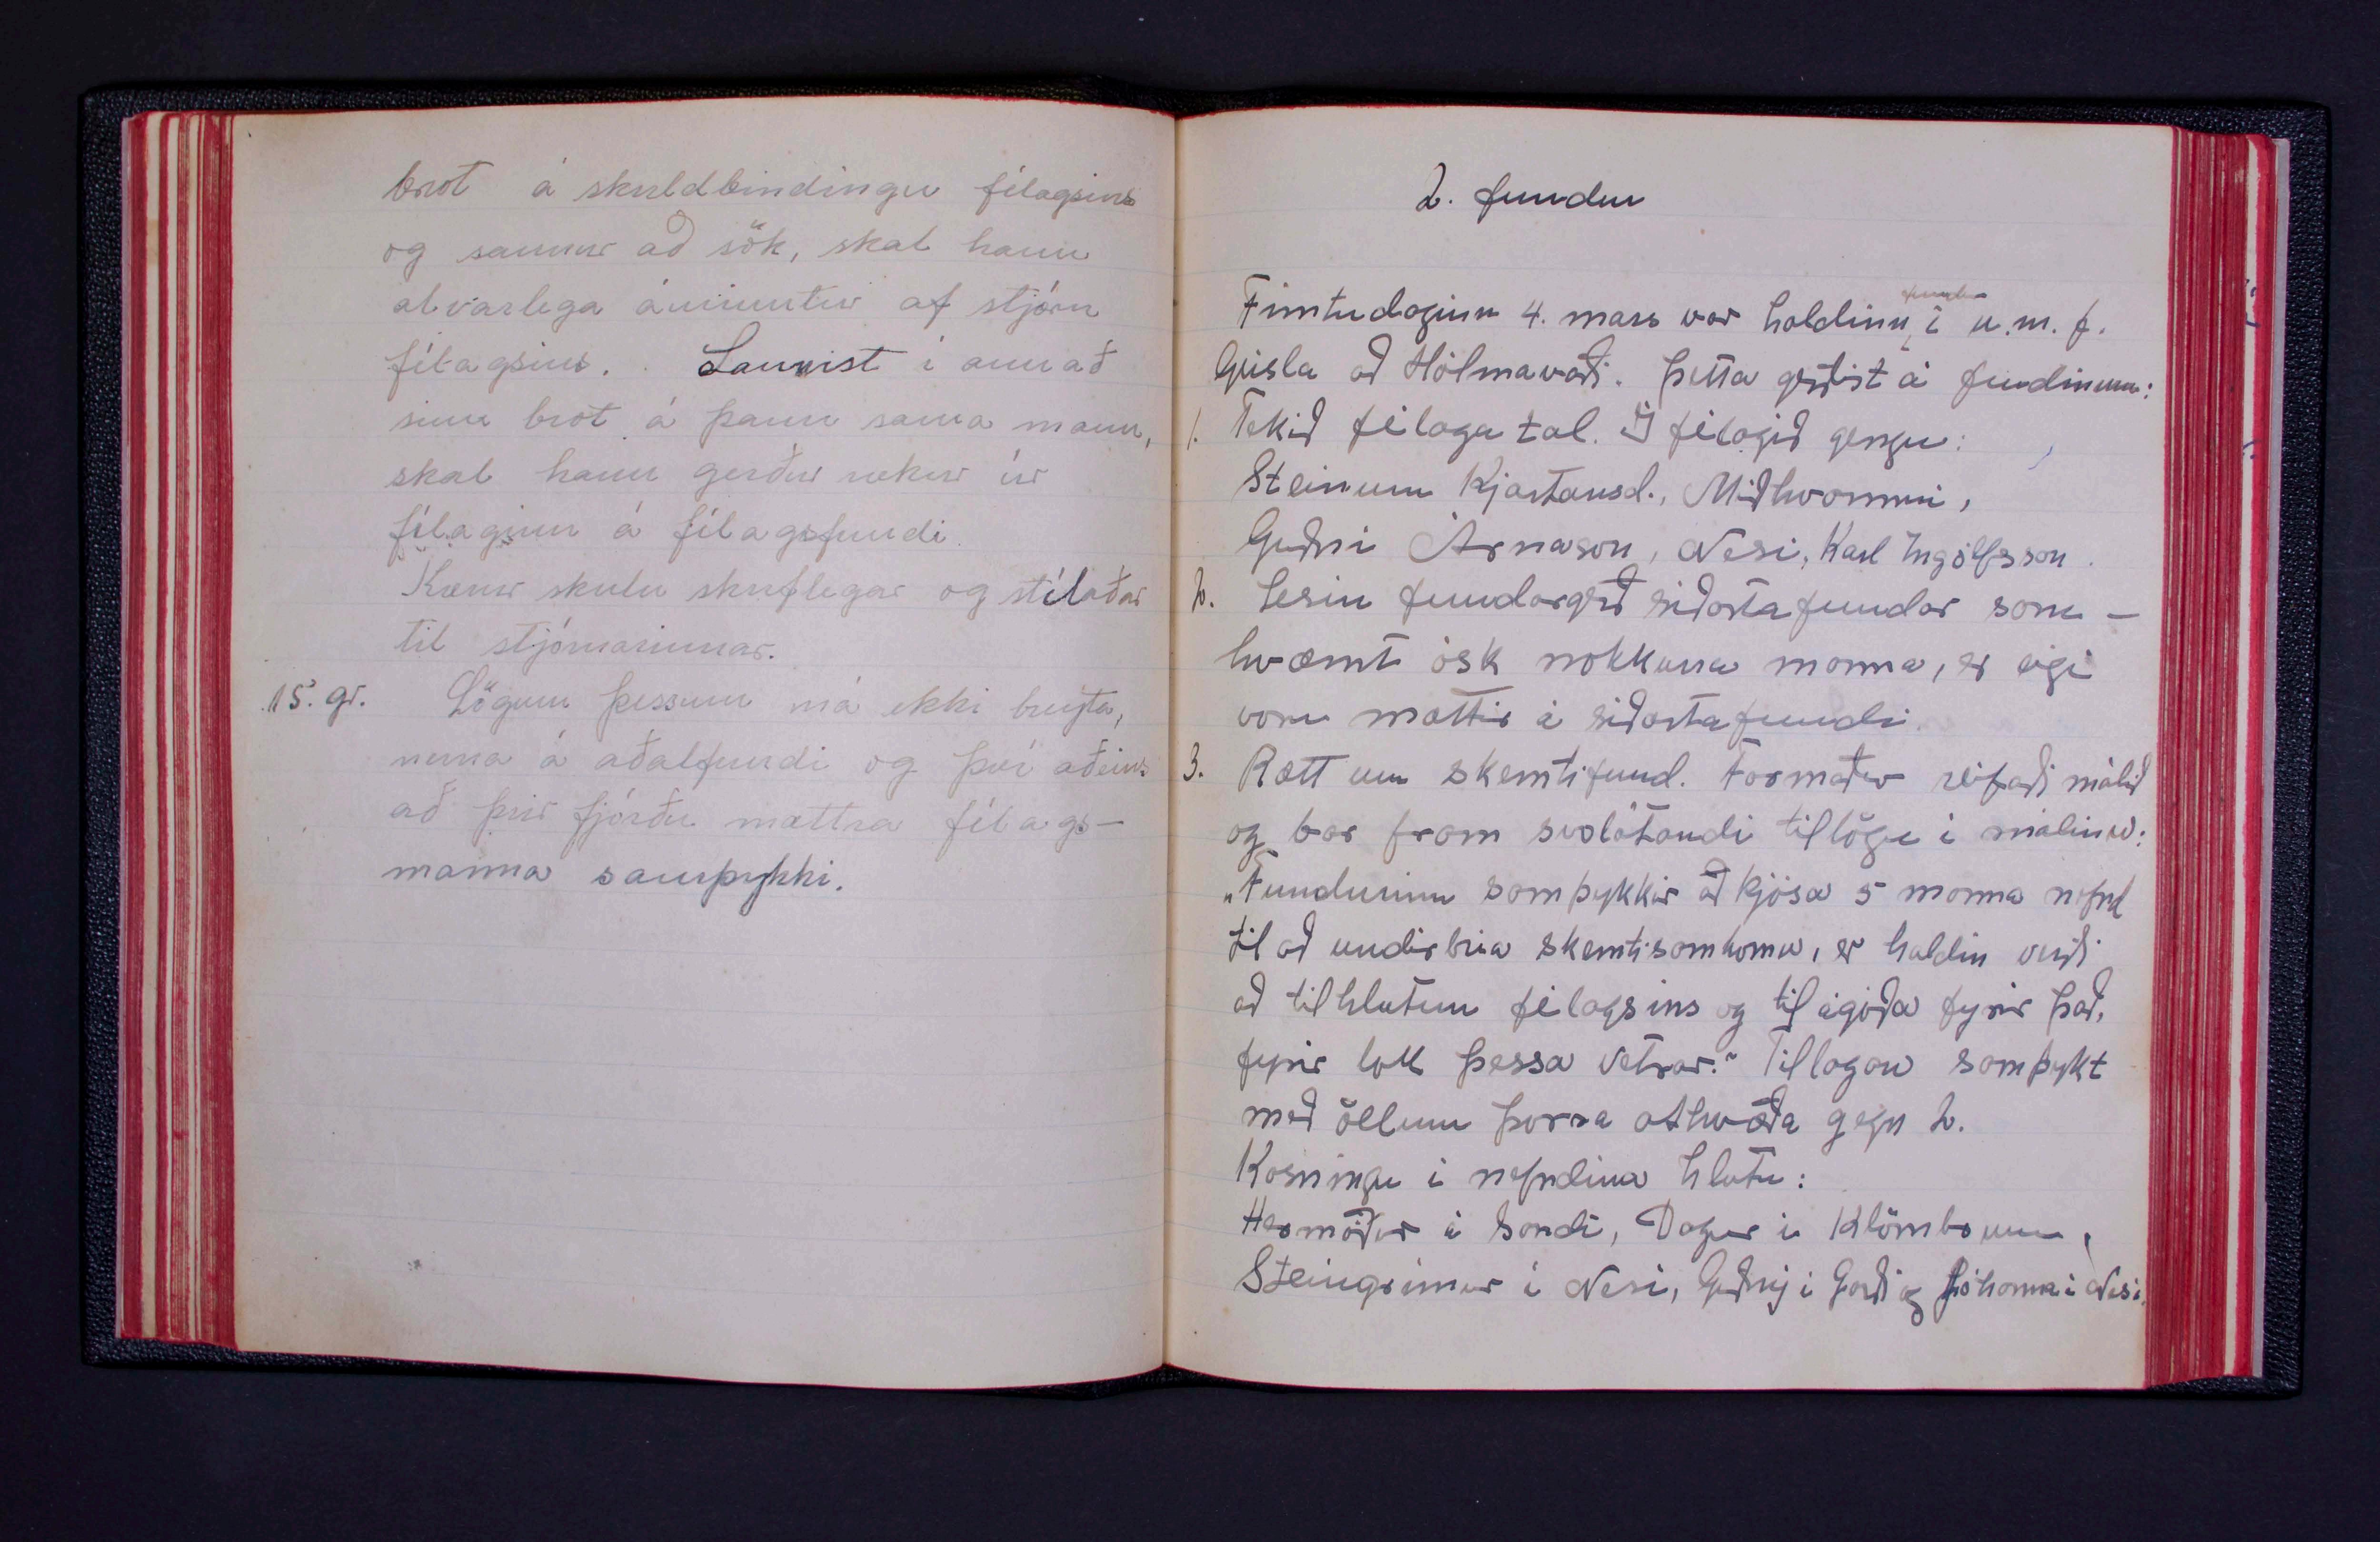 brot á skuldbindingu félagsins
og sannur að sök, skal hann
alvarlega áminntur af stjórn
félagsins. Sannist í annað
sinn brot á þann sama mann,
skal hann gerður rækur úr
félaginu á félagsfundi.
Kærur skulu skriflegar og stílaðar
til stjórnarinnar.
15. gr. Lögum þessum má ekki breyta,
nema á aðalfundi og því aðeins
að þrír fjórðu mættra félags-
manna samþykki.
2. fundur
Fimtudaginn 4. mars var haldinn fundur í u.m.f.
Geisla að Hólmavaði. Þetta gerðist á fundinum:
1. Tekið félagatal. Í félagið gengu:
Steinunn Kjartansd., Miðhvammi,
Guðni Árnason, Nesi, Karl Ingólfsson.
2. Lesin fundargerð síðasta fundar sam-
kvæmt ósk nokkurra manna, er eigi
voru mættir á síðasta fundi.
3. Rætt um skemtifund. Formaður reifaði málið
og bar fram svolátandi tillögu í málinu:
„Fundurinn samþykkir að kjósa 5 manna nefnd
til að undirbúa skemtisamkomu, er haldin verði
að tilhlutun félagsins og til ágóða fyrir það,
fyrir lok þessa vetrar." Tillagan samþykt
með öllum þorra atkvæða gegn 2.
Kosningu í nefndina hlutu:
Hermóður á Sandi, Dagur í Klömbrum,
Steingrímur í Nesi, Guðný í Garði og Jóhanna í Nesi.